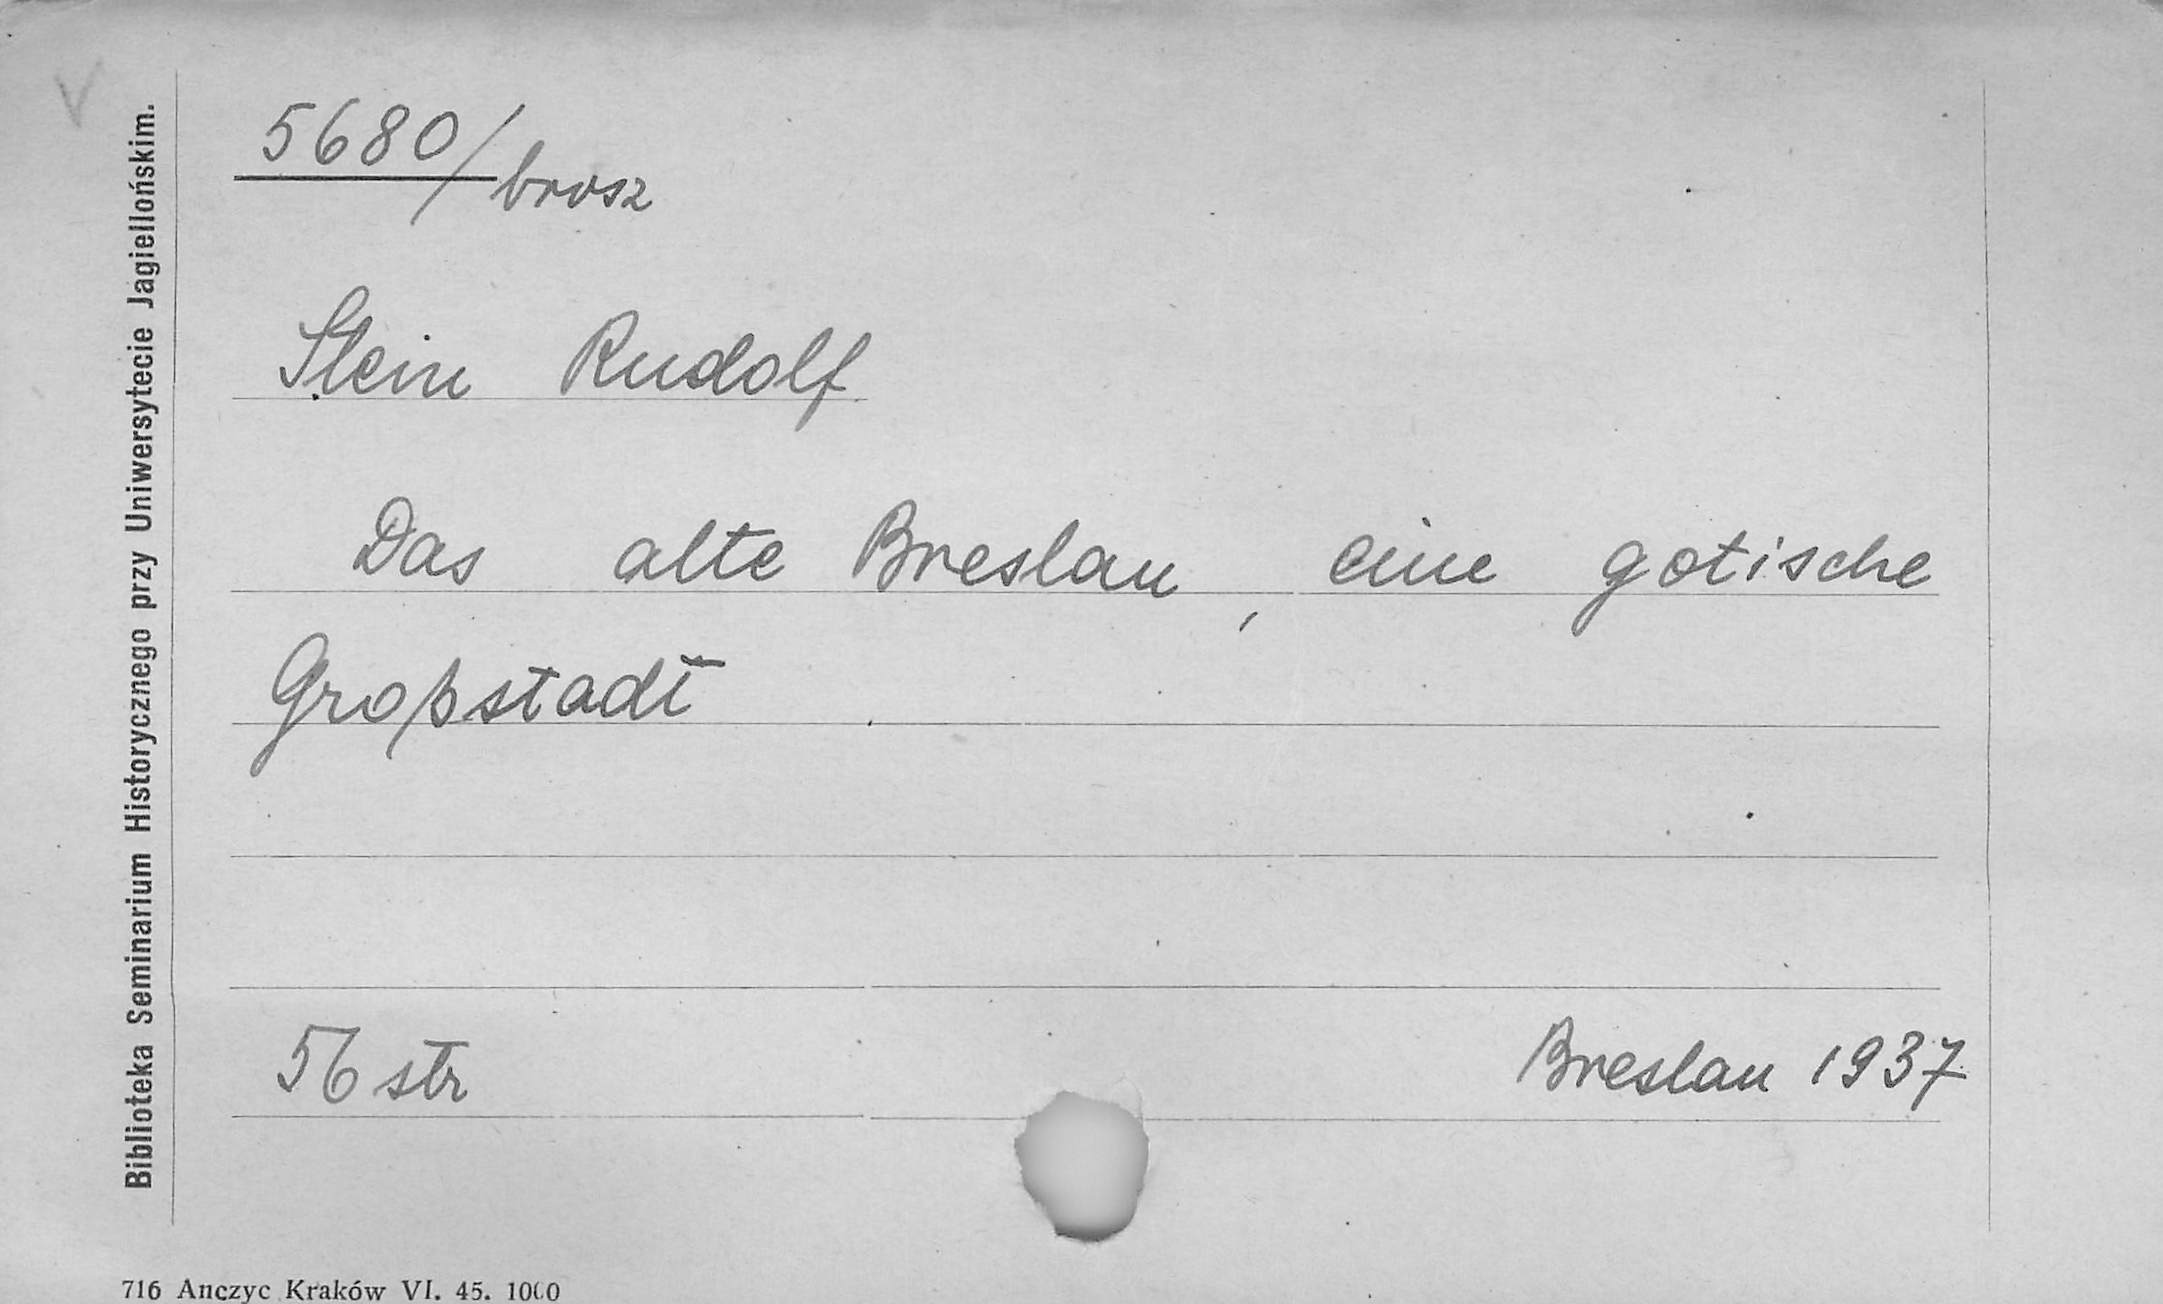 V
5680/brosz
Stein Rudolf
Das alte Breslau, eine gotische
Großstadt
56 str
Breslau 1937
Biblioteka Seminarium Historycznego przy Uniwersytecie Jagiellońskim.
716 Anczyc Kraków VI. 45. 1000